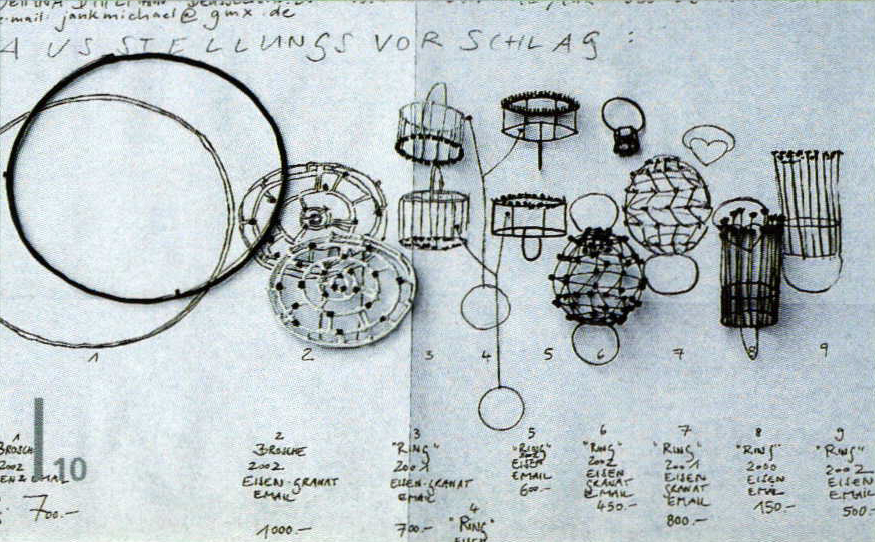 e-mail: jankmichael@gmx.de
AUSSTELLUNGSVORSCHLAG:
1 2 3 4 5 6 7 8 9
10
1
BROSCHE
2002
EMAIL
700.-
2
BROSCHE
2002
EISEN-GRANAT
EMAIL
1000.-
3
"RING"
2001
EISEN-GRANAT
EMAIL
700.-
4
"RING"
EISEN
5
"RING"
2002
EISEN
EMAIL
600.-
6
"RING"
2002
EISEN
GRANAT
EMAIL
450.-
7
"RING"
2001
EISEN
GRANAT
EMAIL
800.-
8
"RING"
2000
EISEN
EMAIL
150.-
9
"RING"
2002
EISEN
EMAIL
500.-